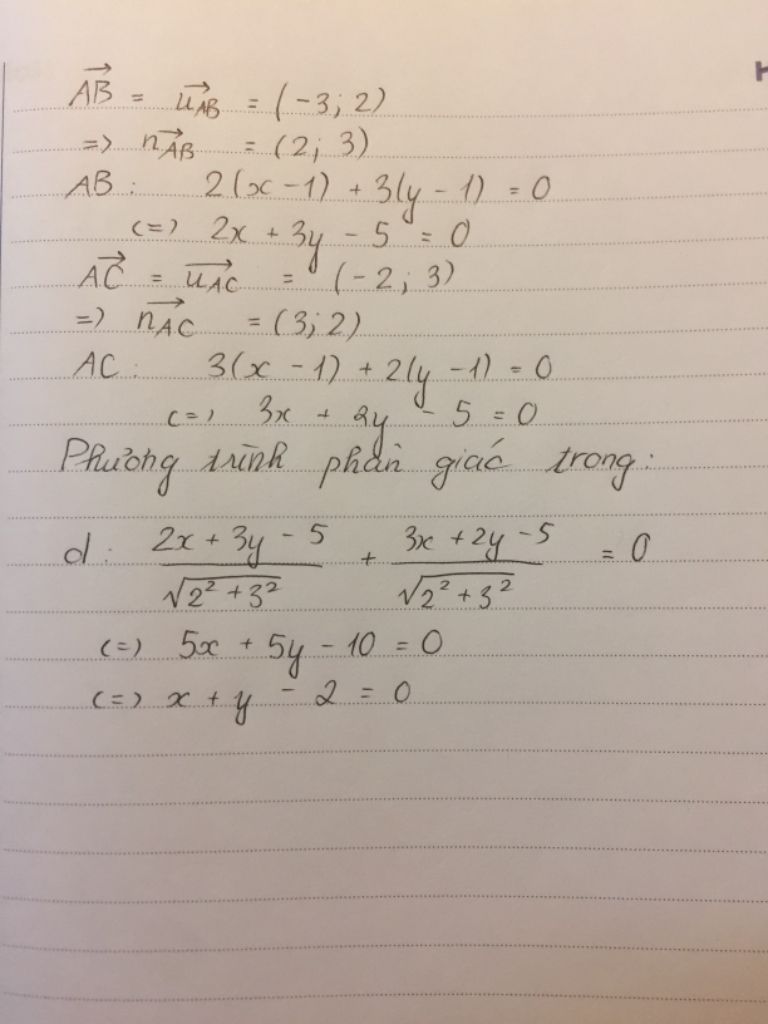 AB→ = u→AB = (-3; 2)
=> n→AB = (2; 3)
AB: 2(x - 1) + 3(y - 1) = 0
(=) 2x + 3y - 5 = 0
AC→ = u→AC = (-2; 3)
=) n→AC = (3; 2)
AC: 3(x - 1) + 2(y - 1) = 0
(=) 3x + 2y - 5 = 0
Phương trình phân giác trong:
d: (2x + 3y - 5)/√(2² + 3²) + (3x + 2y - 5)/√(2² + 3²) = 0
(=) 5x + 5y - 10 = 0
(=) x + y - 2 = 0